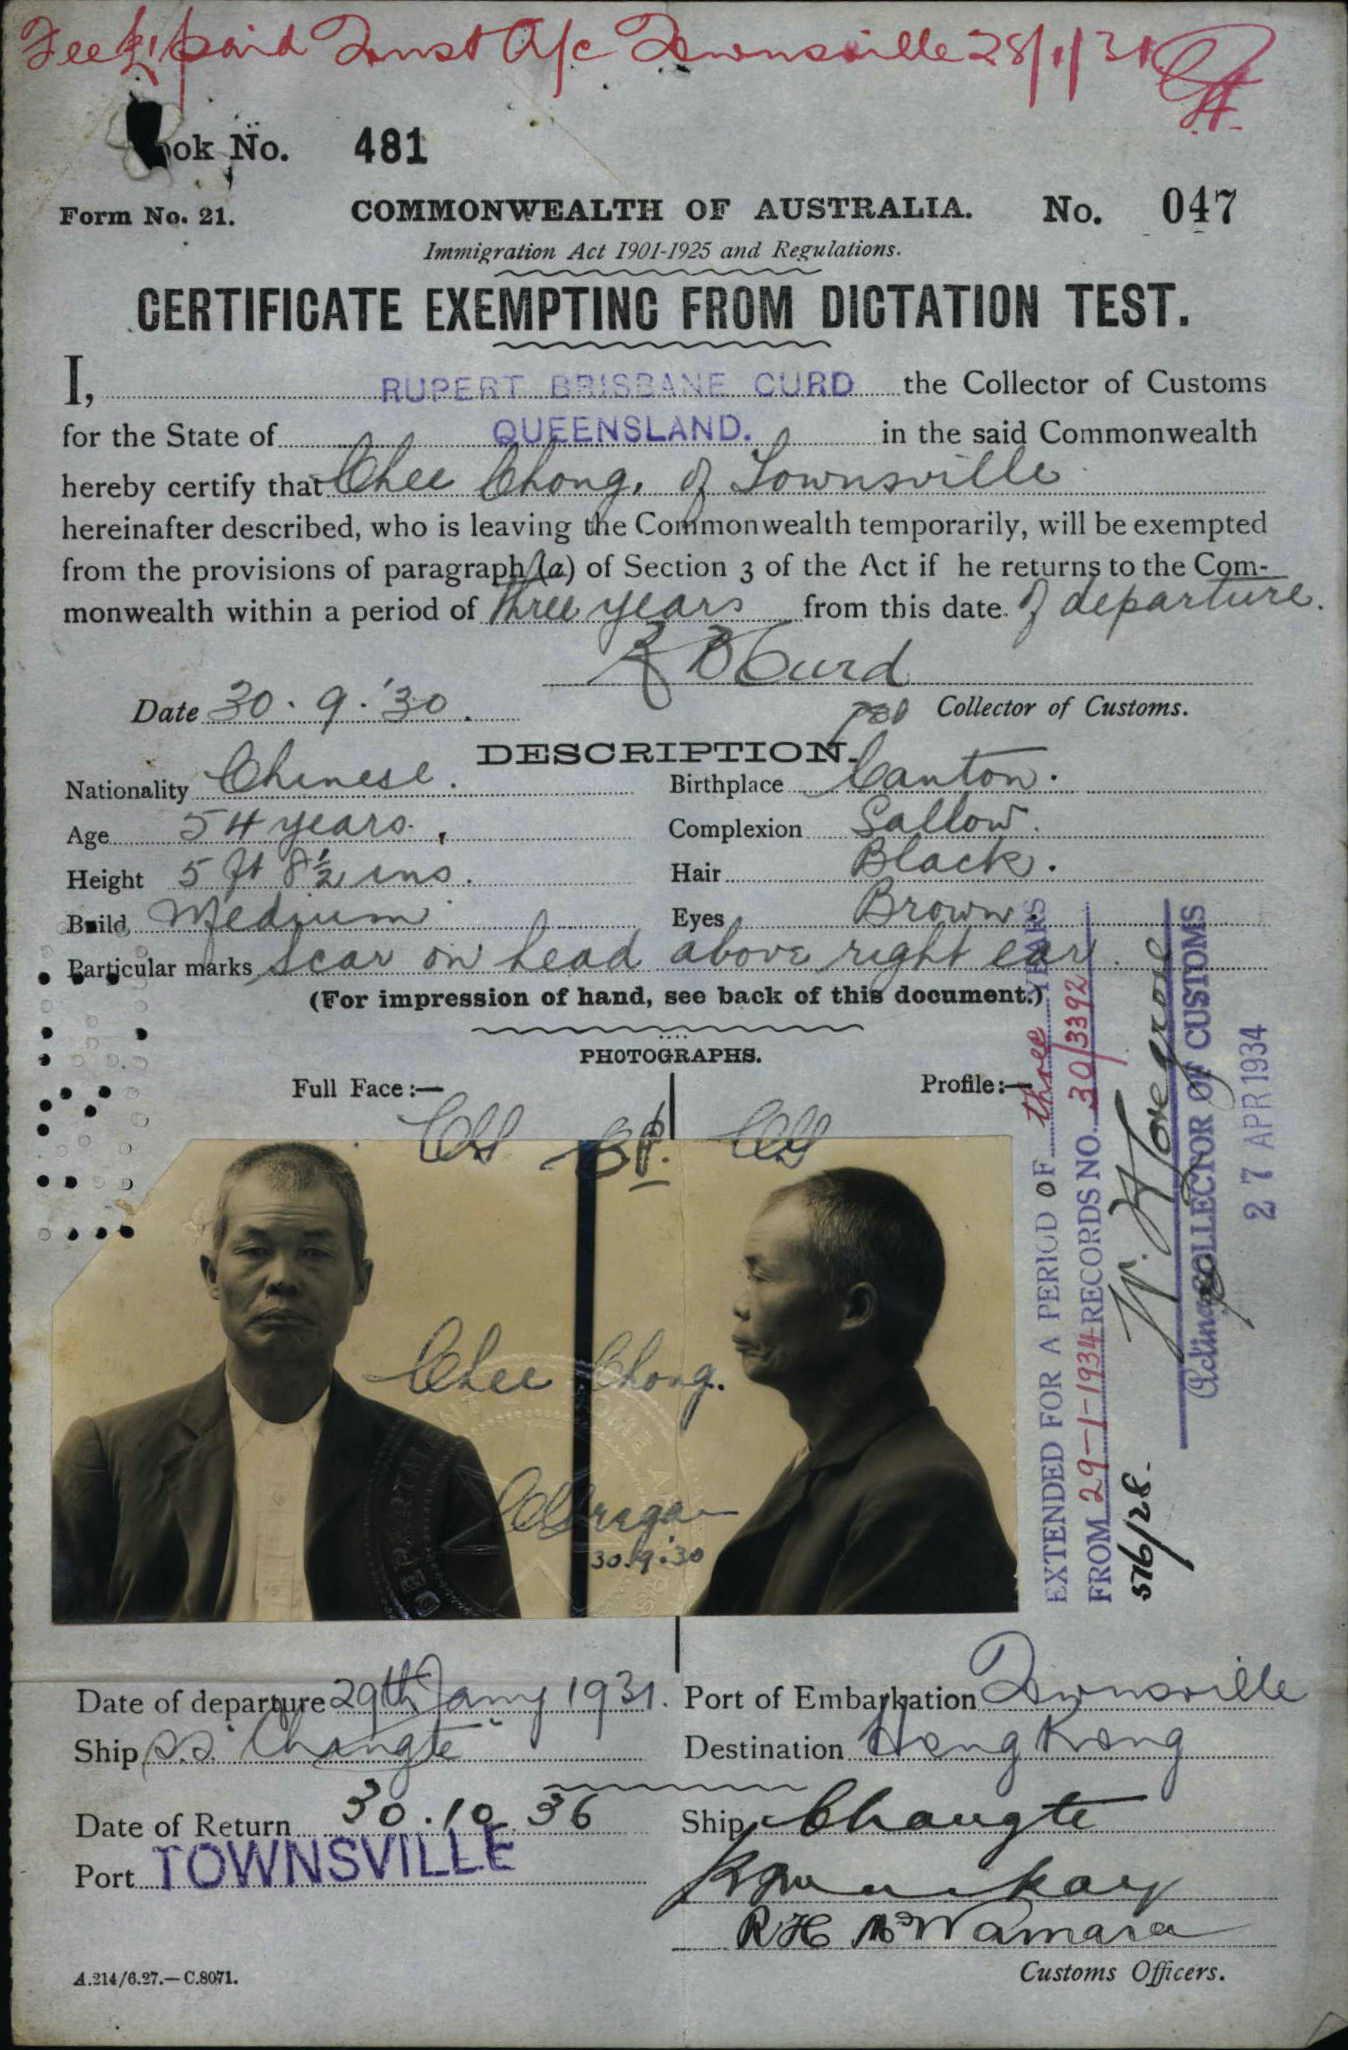 Fee £1 paid Trust A/c Townsville 28/1/31
ook No. 481
Form No. 21. COMMONWEALTH OF AUSTRALIA. No. 047
Immigration Act 1901-1925 and Regulations.
CERTIFICATE EXEMPTING FROM DICTATION TEST.
I, RUPERT BRISBANE CURD the Collector of Customs
for the State of QUEENSLAND. in the said Commonwealth
hereby certify that Chee Chong, of Townsville
hereinafter described, who is leaving the Commonwealth temporarily, will be exempted
from the provisions of paragraph (a) of Section 3 of the Act if he returns to the Com-
monwealth within a period of three years from this date of departure.
R B Curd
Date 30.9.'30. Collector of Customs.
DESCRIPTION.
Nationality Chinese. Birthplace Canton.
Age 54 years. Complexion Sallow.
Height 5 ft 8½ ins. Hair Black.
Build Medium Eyes Brown.
Particular marks Scar on head above right ear.
(For impression of hand, see back of this document.)
PHOTOGRAPHS.
Full Face:— Profile:—
Chee Chong.
30.9.30
EXTENDED FOR A PERIOD OF three YEARS
FROM 29-1-1934 RECORDS NO. 30/3392
Acting COLLECTOR OF CUSTOMS
27 APR 1934
516/28.
Date of departure 29th Jany 1931. Port of Embarkation Townsville
Ship s.s. Changte Destination Hong Kong
Date of Return 30.10.36 Ship Changte
Port TOWNSVILLE
R H McNamara
Customs Officers.
A.214/6.27.—C.8071.